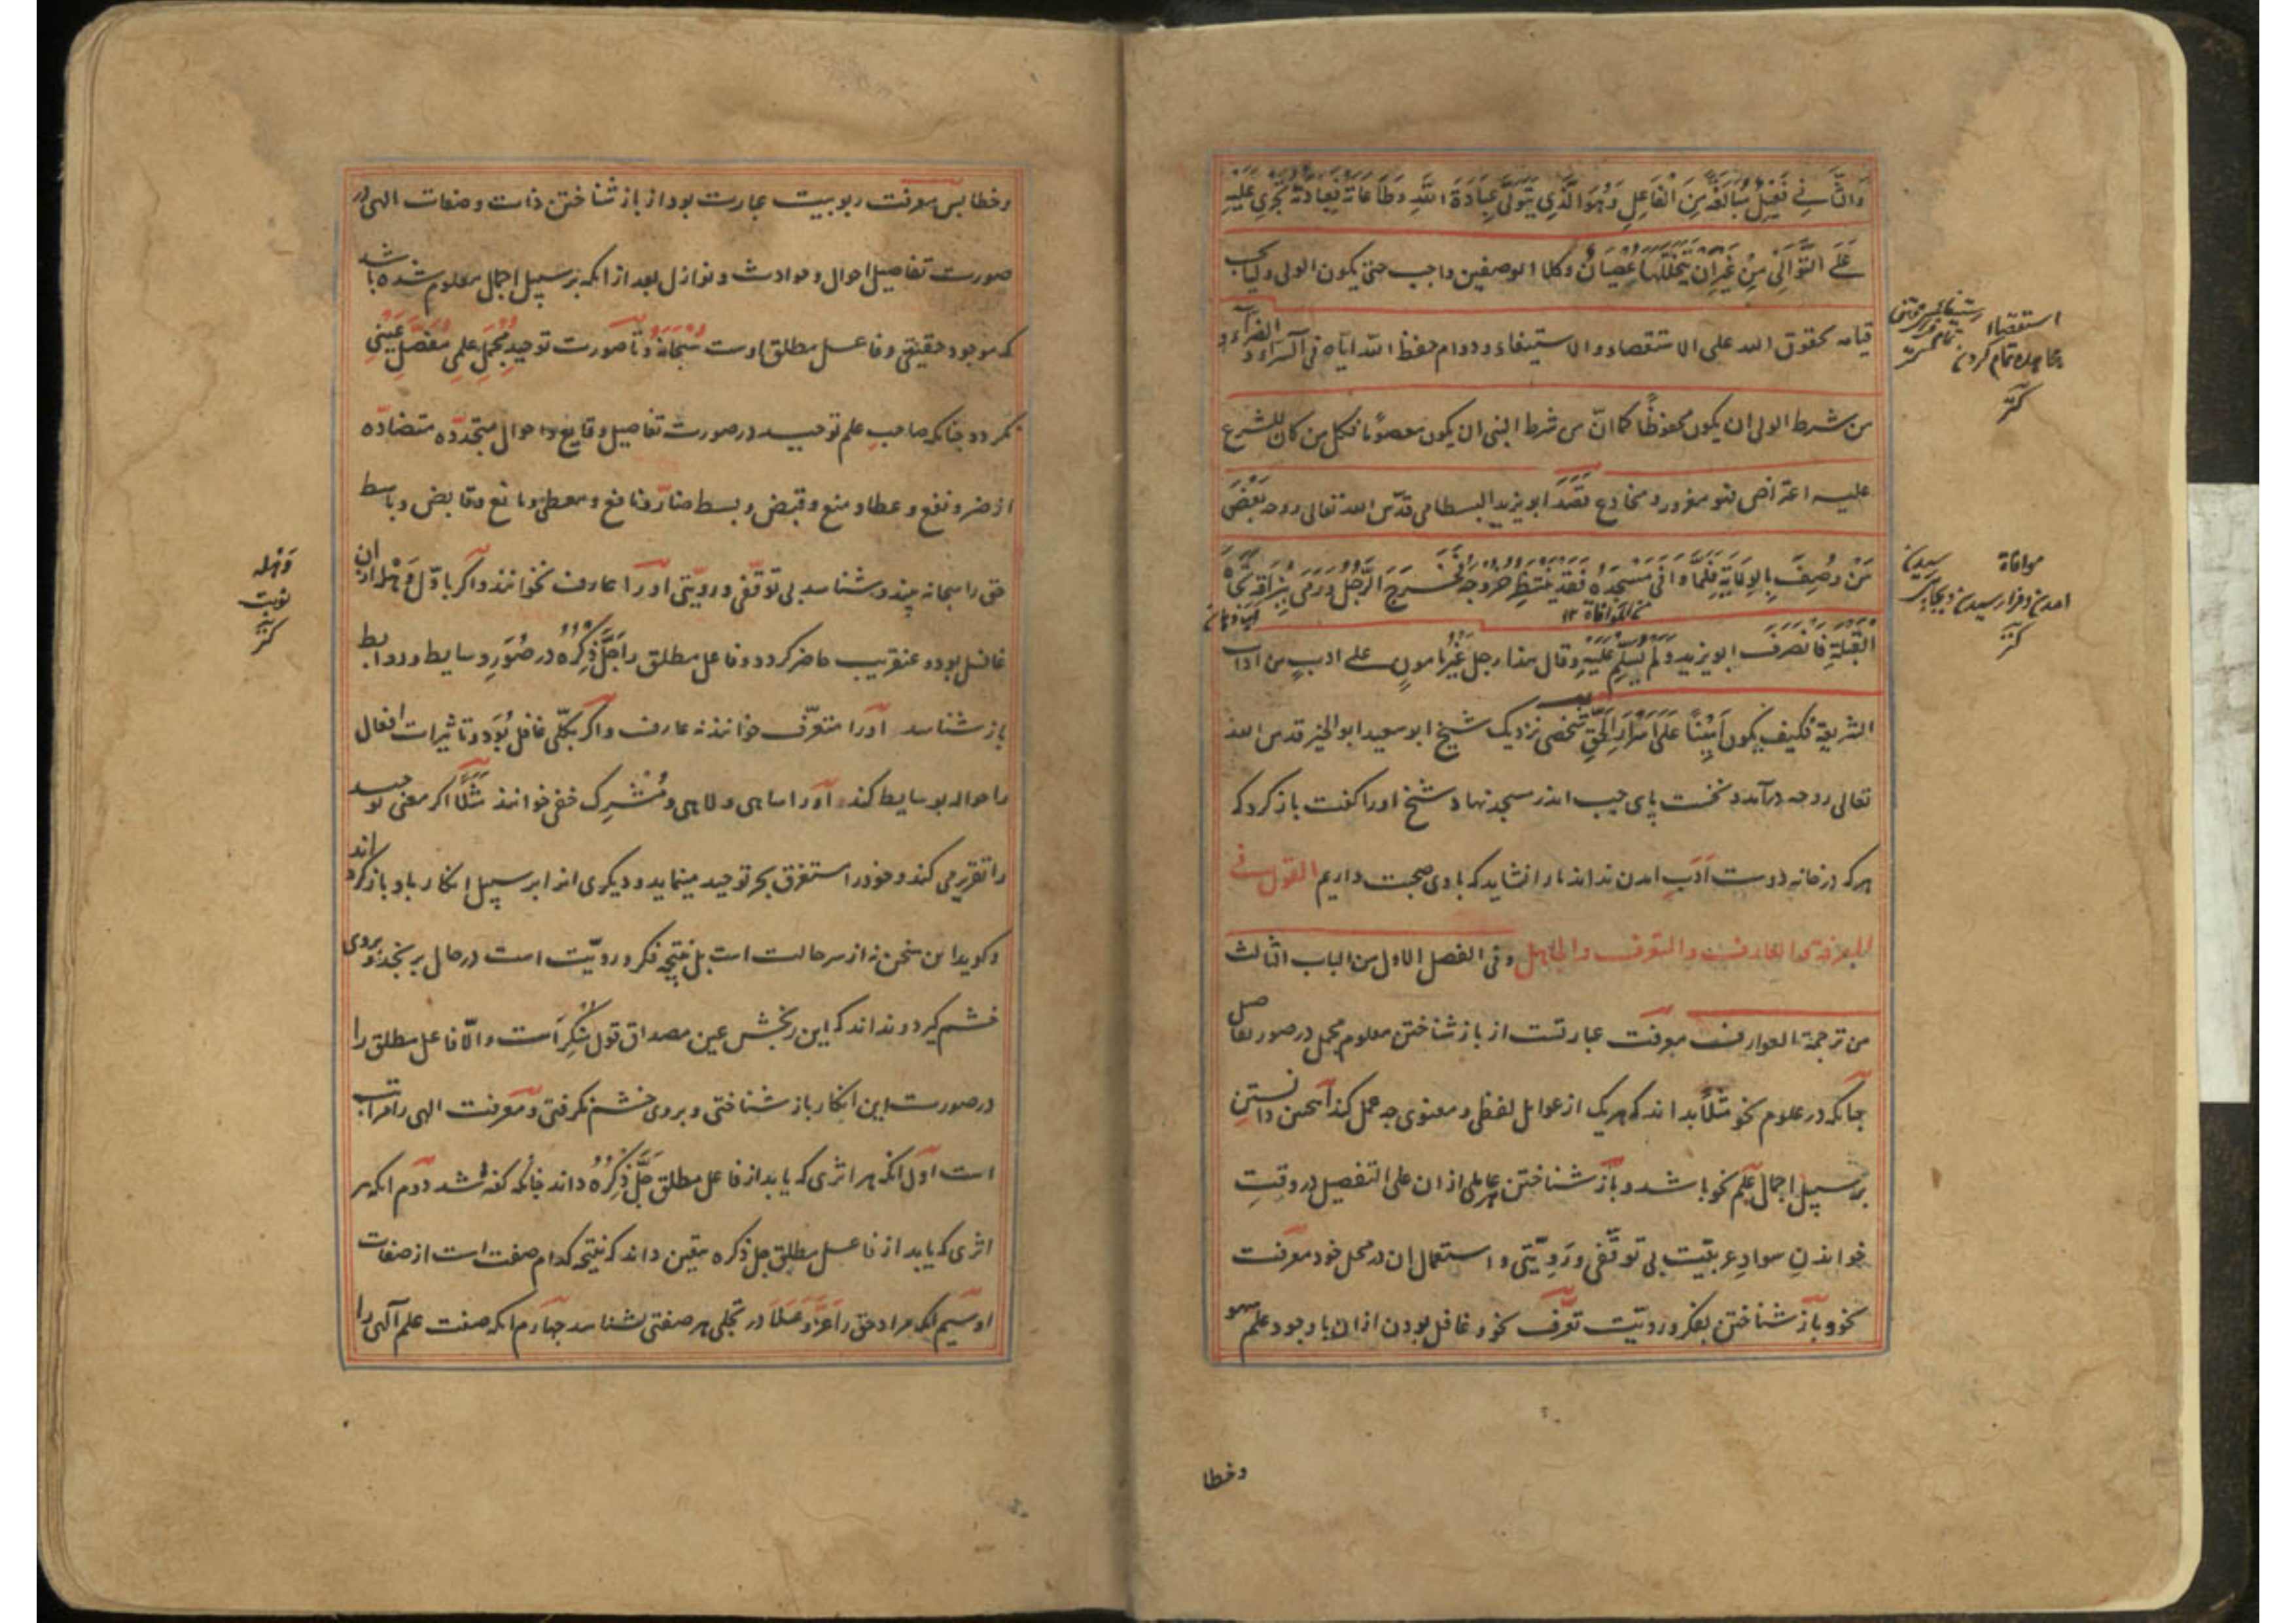 وَالثَّانِي فَعِيلٌ مُبَالَغَةٌ مِنَ الْفَاعِلِ وَهُوَ الَّذِي يَتَوَلَّى عِبَادَةَ اللَّهِ وَطَاعَاتَهُ فَعِبَادَتُهُ تَجْرِي عَلَيْهِ
عَلَى التَّوَالِي مِنْ غَيْرِ اَنْ يَتَخَلَّلَهَا عِصْيَانٌ وكلا الوصفین واجب حتی یکون الولی ولیا یجب
قیامه بحقوق الله علی الاستقصاء والاستیفاء ودوام حفظ الله ایاه فی السراء و الضراء و
من شرط الولی ان یکون محفوظًا کما انّ من شرط النبی ان یکون معصومًا فکل من کان للشرع
علیه اعتراض فهو مغرور و مخادع قَصَدَ ابویزید البسطامی قدّس الله تعالی روحه بَعْضَ
مَنْ وُصِفَ بِالْوِلَايَةِ فَلَمَّا وَافَى مَسْجِدَهُ فَقَعَدَ يَنْتَظِرُ خُرُوجَهُ فَخَرَجَ الرَّجُلُ وَرَمَى بِبُزَاقِهِ تُجَاهَ
من الموافاة ۱۲
الْقِبْلَةِ فَانْصَرَفَ ابویزید وَلَمْ يُسَلِّمْ عَلَيْهِ وقال هذا رجل غَيْرُ مامونٍ علی ادبٍ من آداب
الشریعة فکیف یکون اَمِينًا عَلَى اَسْرَارِ الْحَقِّ شخصی نزدیک شیخ ابوسعید ابوالخیر قدس الله
تعالی روحه درآمد و نخست پای چپ اندر مسجد نهاد شیخ او را گفت باز گرد که
هر که در خانه دوست اَدَبِ امدن نداند ما را نشاید که با وی صحبت داریم القول فی
المعرفة والعارف والمتعرف والجاهل وفی الفصل الاول من الباب الثالث
من ترجمة العوارف معرفت عبارتست از باز شناختن معلوم مجمل در صور تفاصیل
چنانکه در علوم نحو مثلًا بداند که هریک از عوامل لفظی و معنوی چه عمل کند اینچنین دانستن
بر سبیل اجمال علم نحو باشد و باز شناختن هر عاملی ازان علی التفصیل در وقتِ
خواندنِ سوادِ عربیّت بی توقّفی و رَوِیّتی و استعمال ان در محل خود معرفت
نحو و باز شناختن بفکر و رویّت تعرّف نحو و غافل بودن ازان با وجود علم سهو
وخطا
استقصاء
تمام کردن
کنز
موافاة رسیدن
کنز
وخطا پس معرفت ربوبیت عبارت بود از باز شناختن ذات وصفات الهی در
صورت تفاصیل احوال و حوادث و نوازل بعد ازانکه بر سبیل اجمال معلوم شده باشد
که موجود حقیقی وفاعل مطلق اوست سُبْحَانَهُ وتا صورت توحیدِ مُجْمَلِ علمی مُفَصَّلِ عَیْنِی
نگردد چنانکه صاحب علم توحید در صورت تفاصیل وقایع و احوال متجدّده متضادّه
از ضر و نفع و عطا و منع و قبض و بسط ضارّ و نافع و معطی و مانع و قابض و باسط
حق را سبحانه بیند و شناسد بی توقّفی و رویّتی او را عارف نخوانند و اگر باوّل وَهله ازان
غافل بود و عنقریب حاضر گردد و فاعل مطلق را جَلَّ ذِکْرُهُ در صُوَرِ وسایط و روابط
باز شناسد او را متعرّف خوانند نه عارف و اگر بکلّی غافل بُوَد و تاثیرات افعال
را حواله بوسایط کند او را ساهی و لاهی و مُشْرِک خفی خوانند مَثَلًا اگر معنی توحید
را تقریر می کند و خود را مستغرق بحر توحید مینماید و دیگری انرا بر سبیل انکار باو باز گرداند
و گوید این سخن نه از سر حالت است بل نتیجه فکر و رویّت است در حال برنجد و بر وی
خشم گیرد و نداند که این رنجش عین مصداق قول مُنْکِر است و الّا فاعل مطلق را
در صورت این انکار باز شناختی و بر وی خشم نگرفتی و معرفت الهی را مراتب
است اول انکه هر اثری که یابد از فاعل مطلق جَلَّ ذِکْرُهُ داند چنانکه گفته شد دوم انکه هر
اثری که یابد از فاعل مطلق جل ذکره بیقین داند که نتیجه کدام صفت است از صفات
او سیم انکه مراد حق را عَزَّ وَعَلَا در تجلی هر صفتی بشناسد چهارم انکه صفت علم الهی را
وَهله
نوبت
کنز